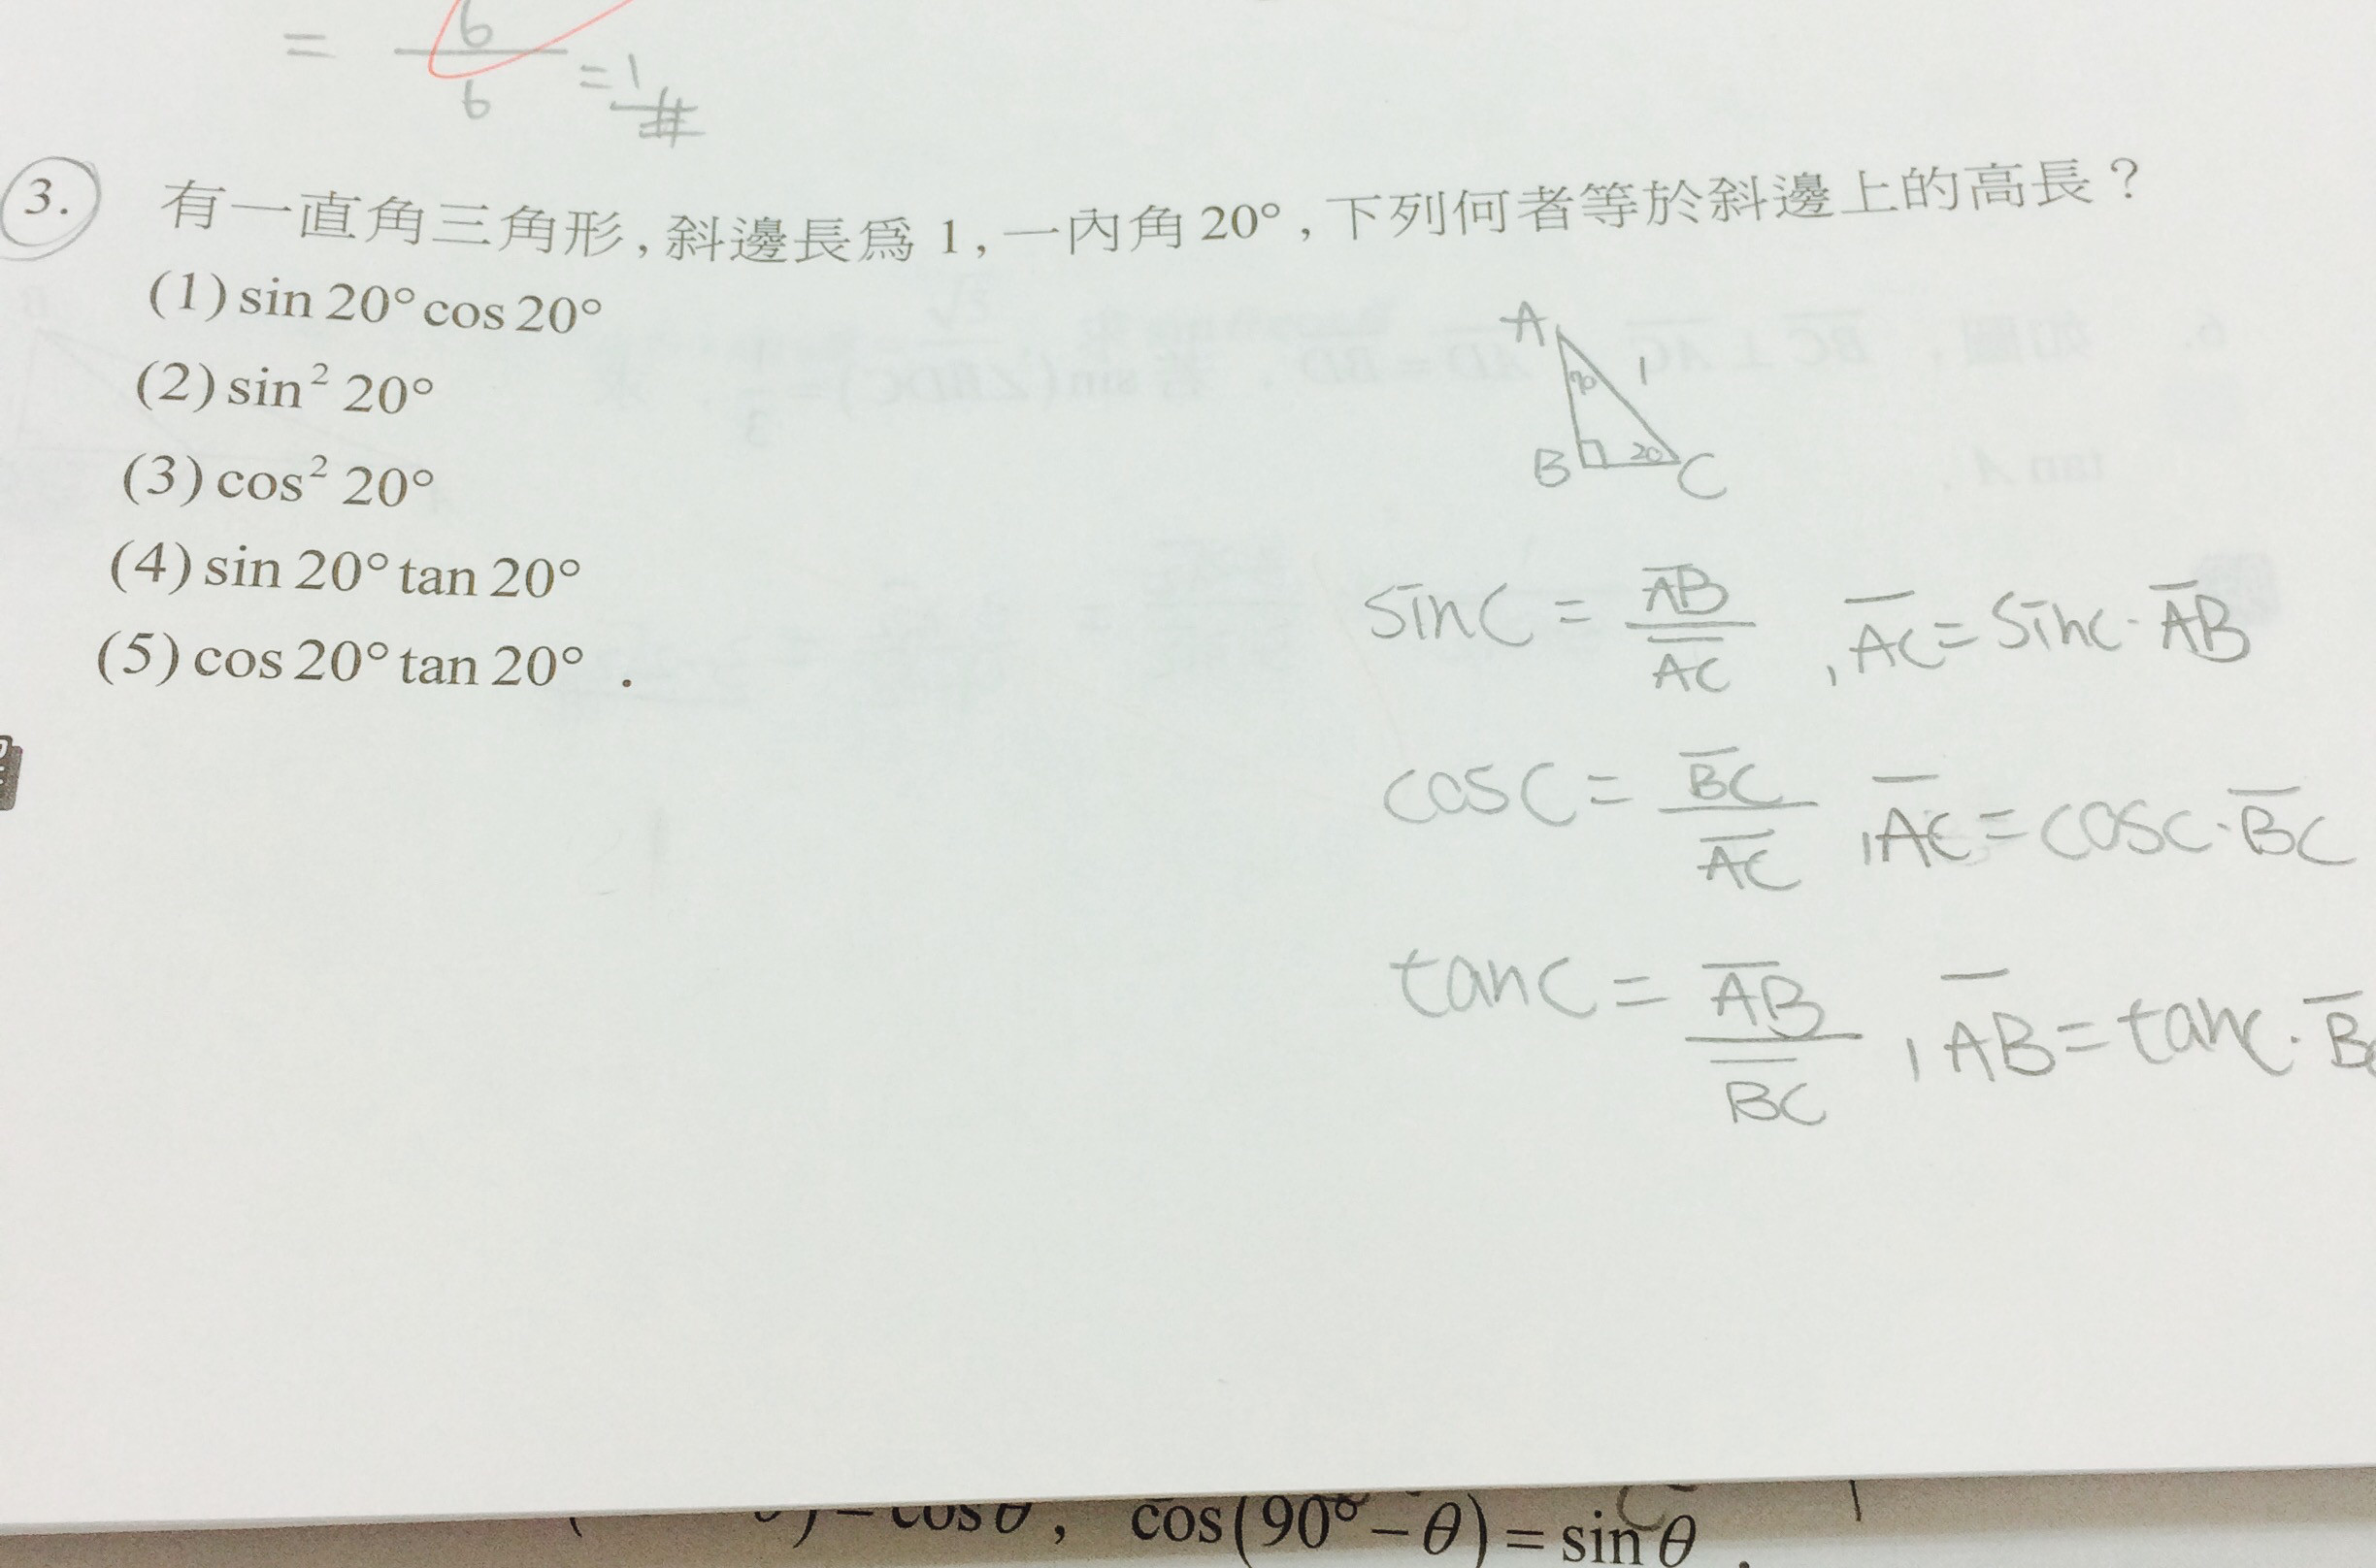 = 6/6 = 1 #
3. 有一直角三角形,斜邊長為 1,一內角 20°,下列何者等於斜邊上的高長?
(1) sin 20° cos 20°
(2) sin² 20°
(3) cos² 20°
(4) sin 20° tan 20°
(5) cos 20° tan 20° .
A
70 1
B 20 C
sinC = A̅B̅/A̅C̅ , A̅C̅ = sinC · A̅B̅
cosC = B̅C̅/A̅C̅ , A̅C̅ = cosC · B̅C̅
tanC = A̅B̅/B̅C̅ , A̅B̅ = tanC · B̅
θ) = cosθ , cos(90° − θ) = sinθ .